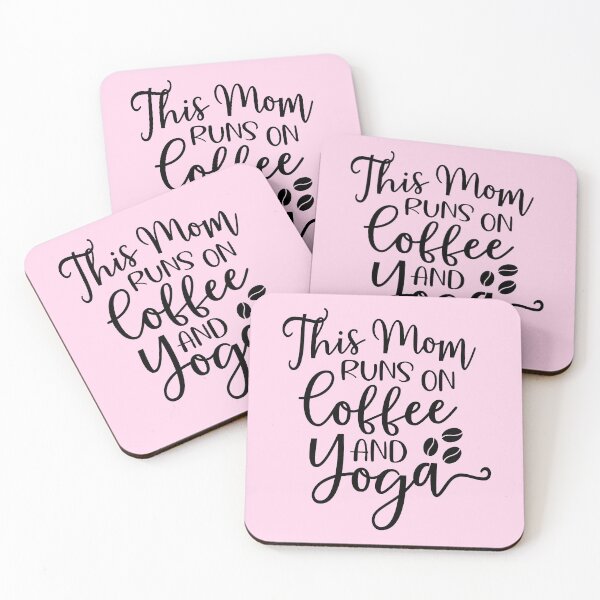 This Mom
RUNS ON
Coffee
This Mom
RUNS ON
Coffee
AND
Yoga
This Mom
RUNS ON
Coffee
AND
Yoga
This Mom
RUNS ON
Coffee
AND
Yoga